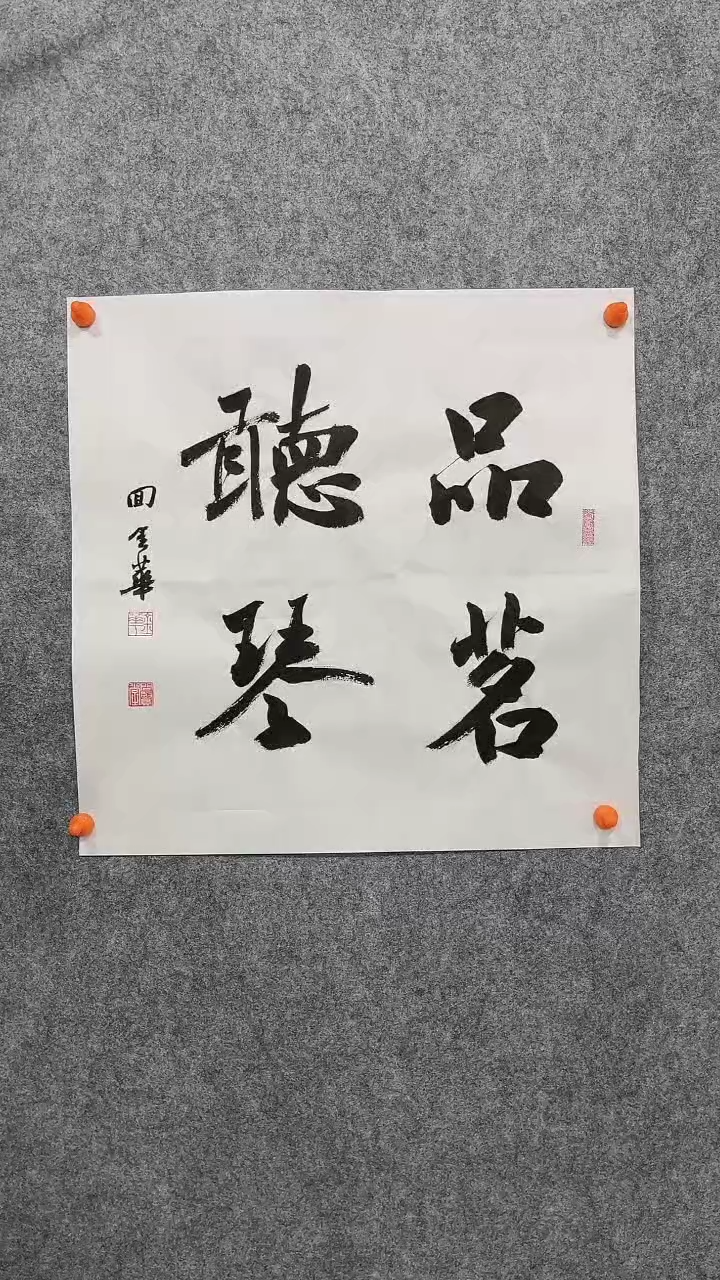 品茗
聽琴
回金華